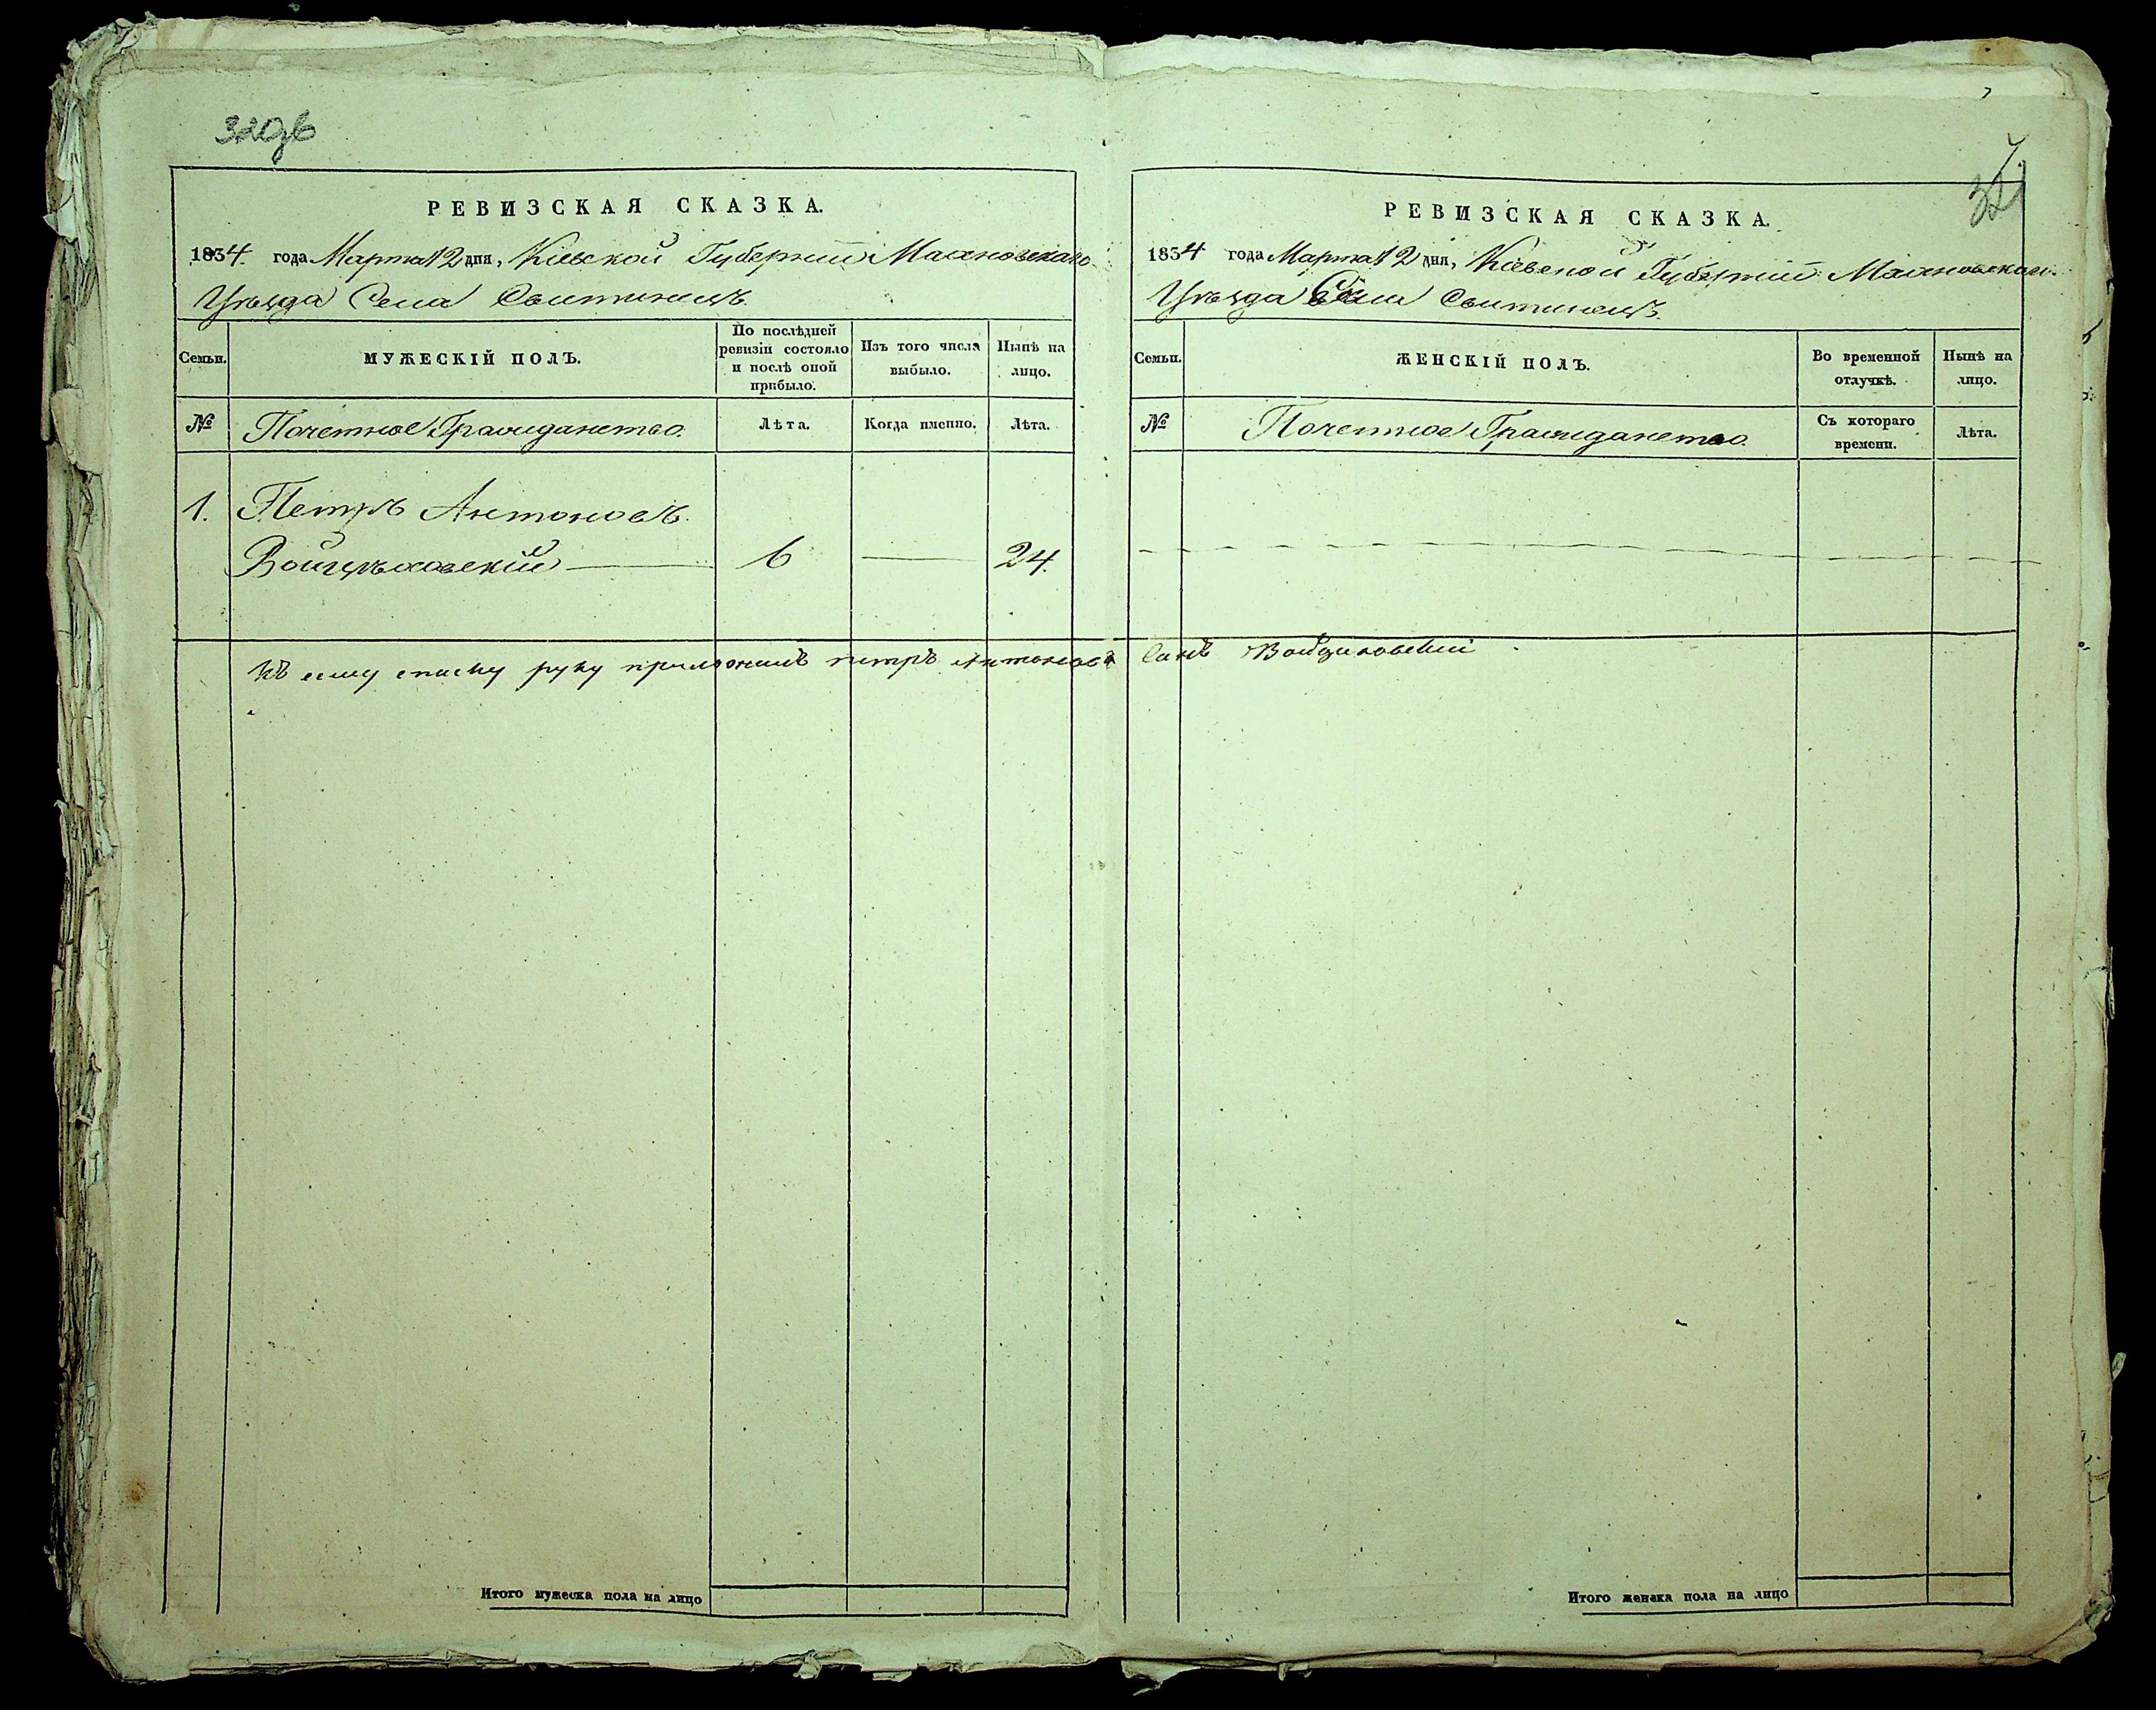 320зв
РЕВИЗСКАЯ СКАЗКА.
1834. года Марта 12 дня, Кіевской Губерніи Махновскаго
Уѣзда Села Свитинецъ
Семьи.
МУЖЕСКІЙ ПОЛЪ.
По послѣдней ревизіи состояло и послѣ оной прибыло.
Изъ того числа выбыло.
Нынѣ на лицо.
№
Почетное Гражданство.
Лѣта.
Когда именно.
Лѣта.
1. Петръ Антоновъ
Войцѣховскій 6 24.
Къ сему списку руку приложилъ петръ Антоновъ Сынъ Войциховскій
Итого мужеска пола на лицо
321
РЕВИЗСКАЯ СКАЗКА.
1834 года Марта 12 дня, Кіевской Губерніи Махновскаго
Уѣзда Села Свитинецъ.
Семьи.
ЖЕНСКІЙ ПОЛЪ.
Во временной отлучкѣ.
Нынѣ на лицо.
№
Почетное Гражданство.
Съ котораго времени.
Лѣта.
Итого женска пола на лицо